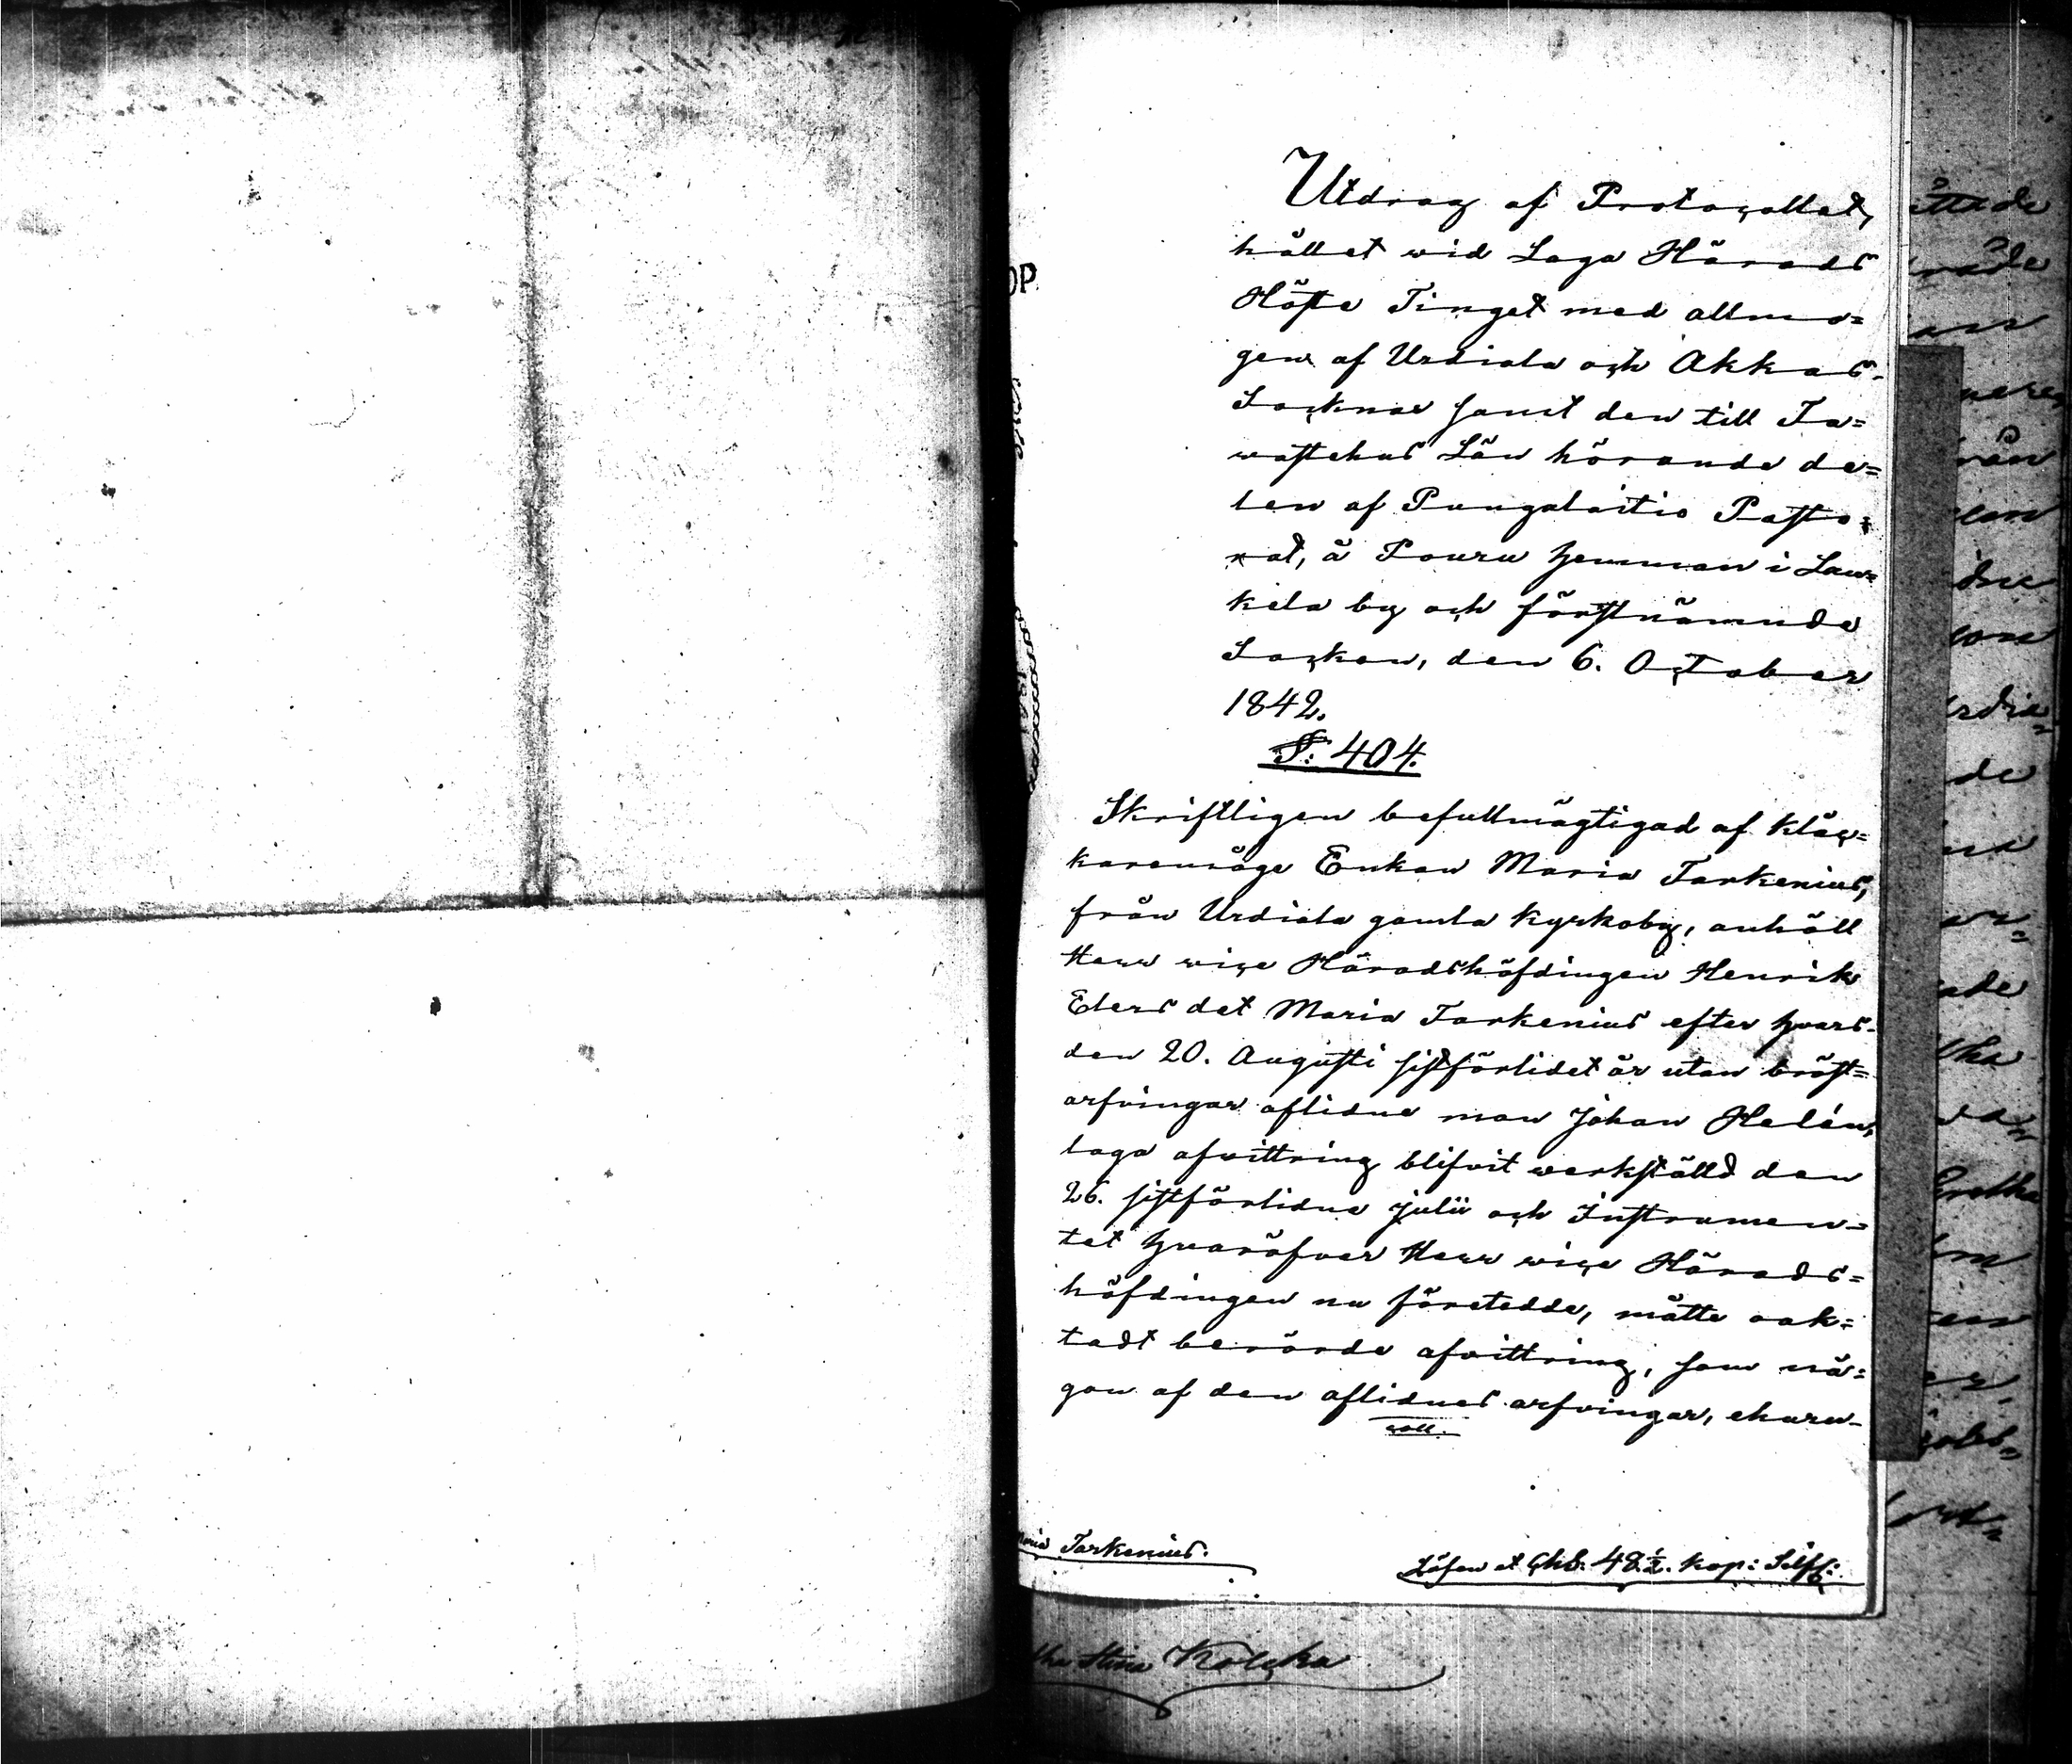 Utdrag af Protocollet,
hållet wid Laga Härads
Höste Tinget med allmo=
gen af Urdiala och Akkas
Socknar samt den till Ta=
wastehus Län hörande de=
len af Pungalaitio Pasto=
rat, å Pouru hemman i Lau=
kela by och förstnämnde
Socken, den 6. October
1842.
§: 404.
Skriftligen befullmägtigad af klåc=
karemåge Enkan Maria Tarkenius,
från Urdiala gamla kyrkoby, anhöll
Herr vice Häradshöfdingen Henrik
Elers det Maria Tarkenius efter hvars
den 20. Augusti sistförlidet år utan bröst=
arfvingar aflidne man Johan Helén,
laga afvittring blifvit werkställd den
26. sistförlidne Julii och Instrumen=
tet hvaröfver Herr vice Härads=
höfdingen nu företedde, måtte oak=
tadt berörde afvittring, som nå=
gon af den aflidnes arfvingar, ehuru
coll.
Tarkenius.
Lösen et Chb: 48½. kop: Silf:
Stina Kolcka
ade
Gretha